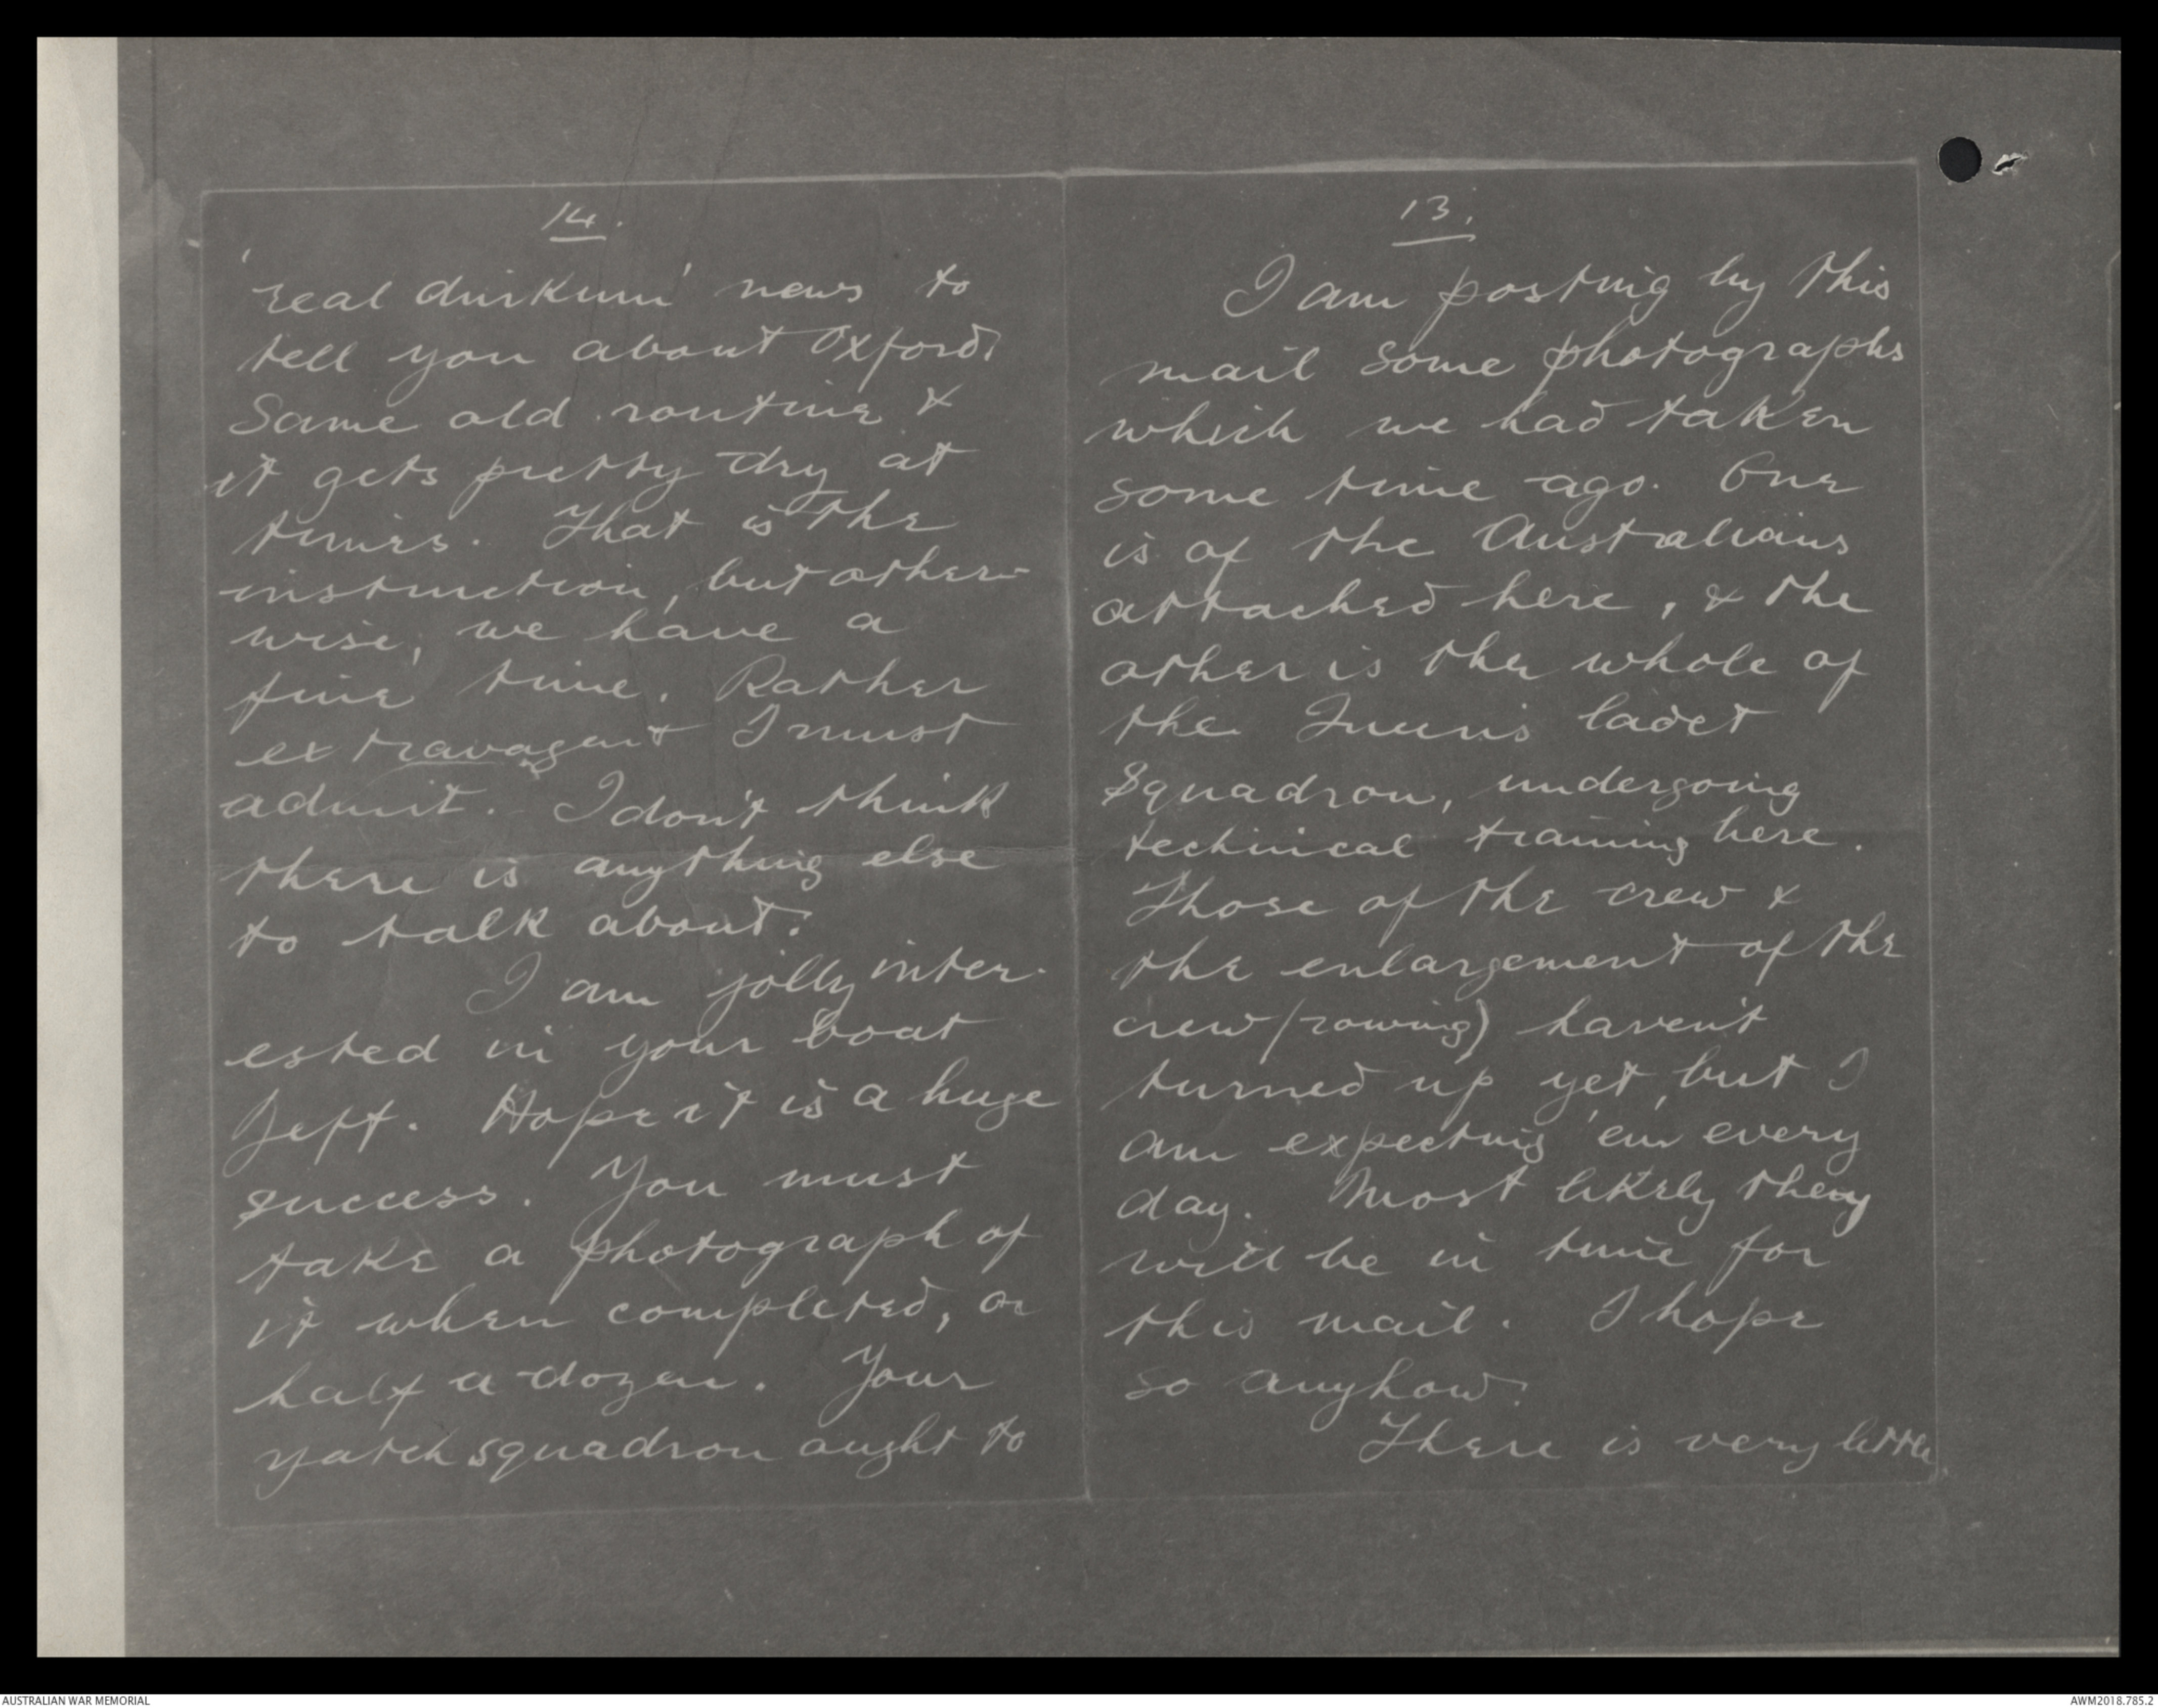 13.
I am posting by this
mail some photographs
which we had taken
some time ago. One
is of the Australians
attached here, & the
other is the whole of
the Queen's Cadet
Squadron, undergoing
technical training here.
Those of the crew &
the enlargement of the
crew (rowing) haven't
turned up yet, but I
am expecting 'em every
day. Most likely they
will be in time for
this mail. I hope
so anyhow.
There is very little
14.
'real dinkum' news to
tell you about Oxford.
Same old routine &
it gets pretty dry at
times. That is the
instruction, but other-
wise, we have a
fine time. Rather
extravagent I must
admit. I don't think
there is anything else
to talk about.
I am jolly inter-
ested in your boat
Jeff. Hope it is a huge
success. You must
take a photograph of
it when completed, or
half a dozen. Your
yatch squadron ought to
AUSTRALIAN WAR MEMORIAL
AWM2018.785.2